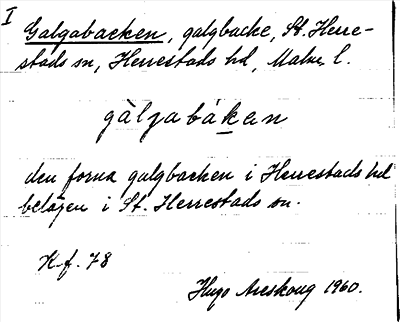 I
Galgabacken, galgbacke, St. Herre-
stads sn, Herrestads hd, Malm. l.
gàlgabákan
den forna galgbacken i Herrestads hd
belägen i St. Herrestads sn.
H.f. 78
Hugo Areskoug 1960.